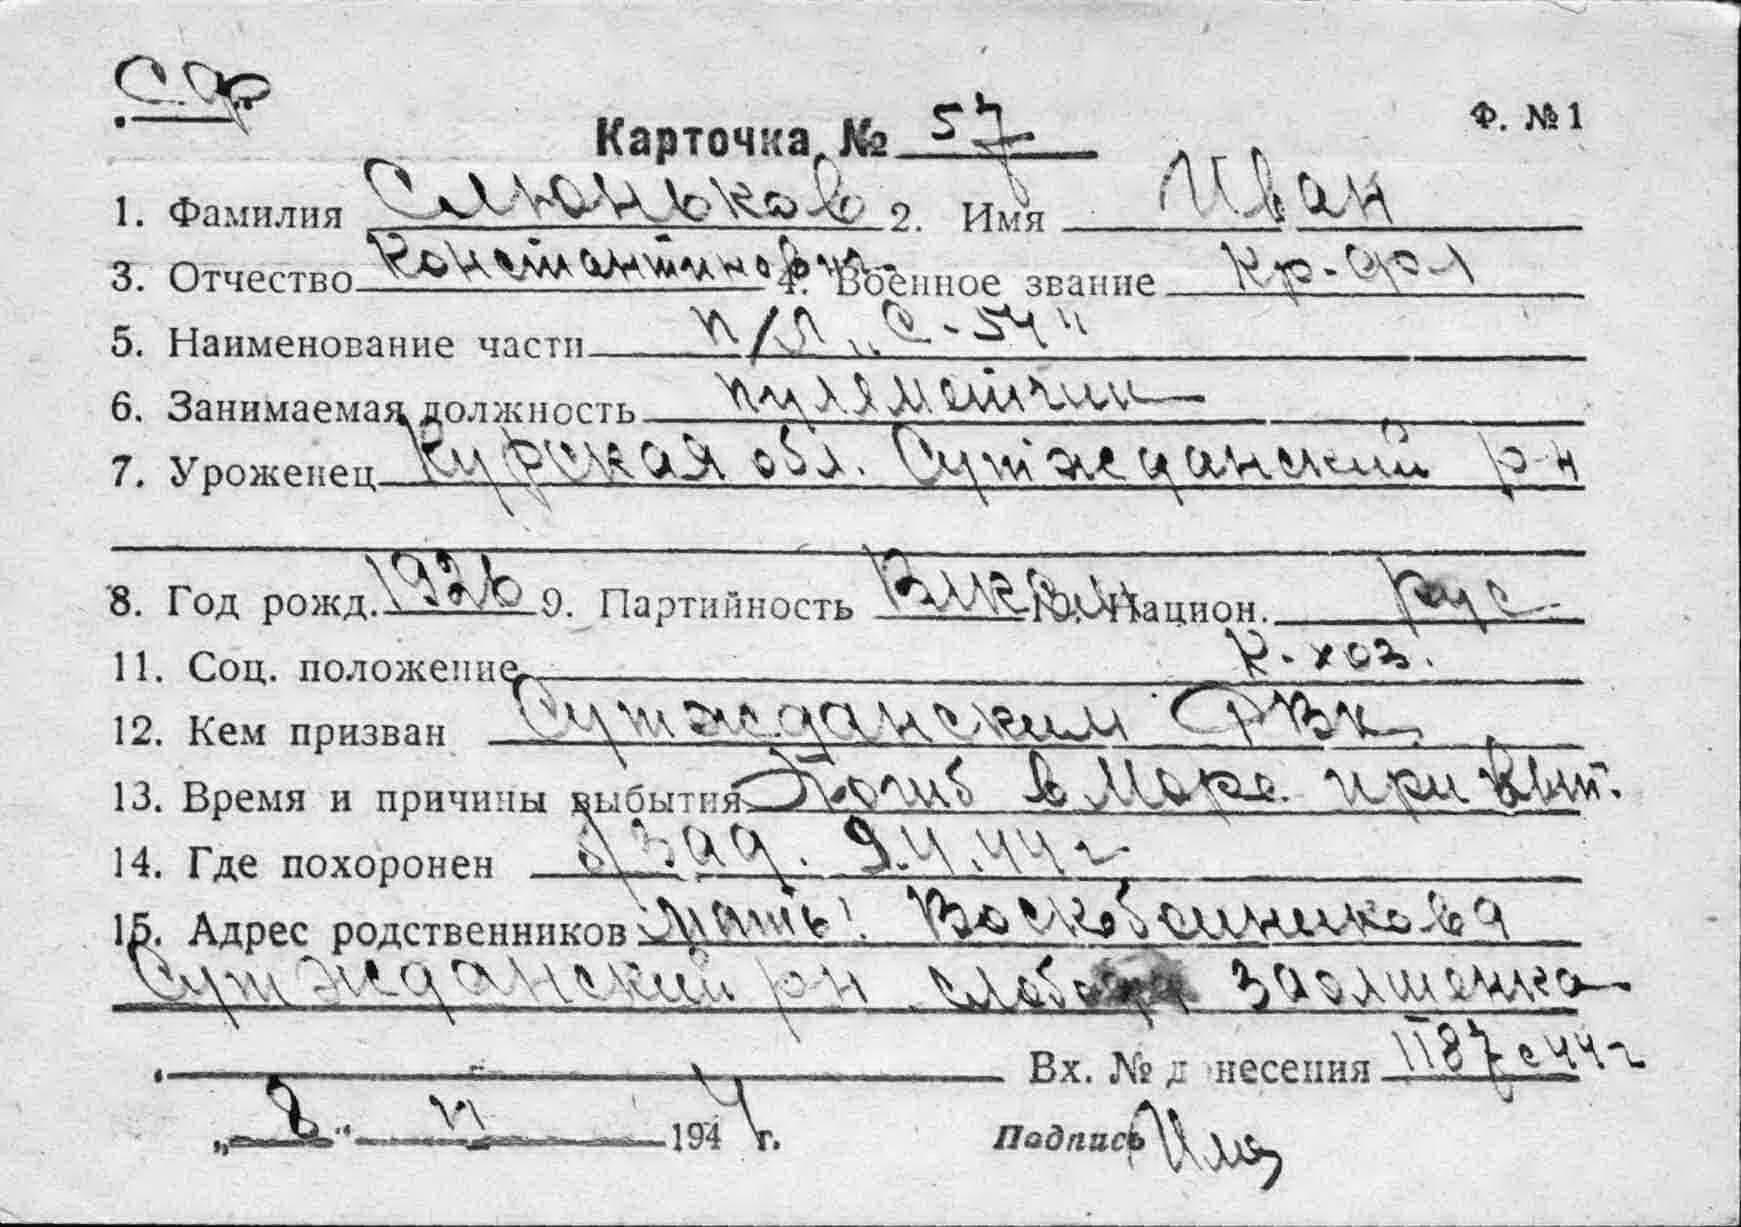 С.Ф.
Карточка № 57
Ф. № 1
1. Фамилия Слюньков 2. Имя Иван
3. Отчество Константинович 4. Военное звание Кр-фл
5. Наименование части п/л „С-54"
6. Занимаемая должность пулеметчик
7. Уроженец Курская обл. Сутжеданский р-н
8. Год рожд. 1926 9. Партийность ВЛКСМ 10. Национ. рус.
11. Соц. положение к-хоз.
12. Кем призван Сутжеданским РВК
13. Время и причины выбытия Погиб в море при вып.
14. Где похоронен б/зад. 9.4.44 г
15. Адрес родственников мать: Воскобойникова
Сутжеданский рн слобода Заолшенка
Вх. № донесения 1187с 44 г
„8" 194 г.
Подпись